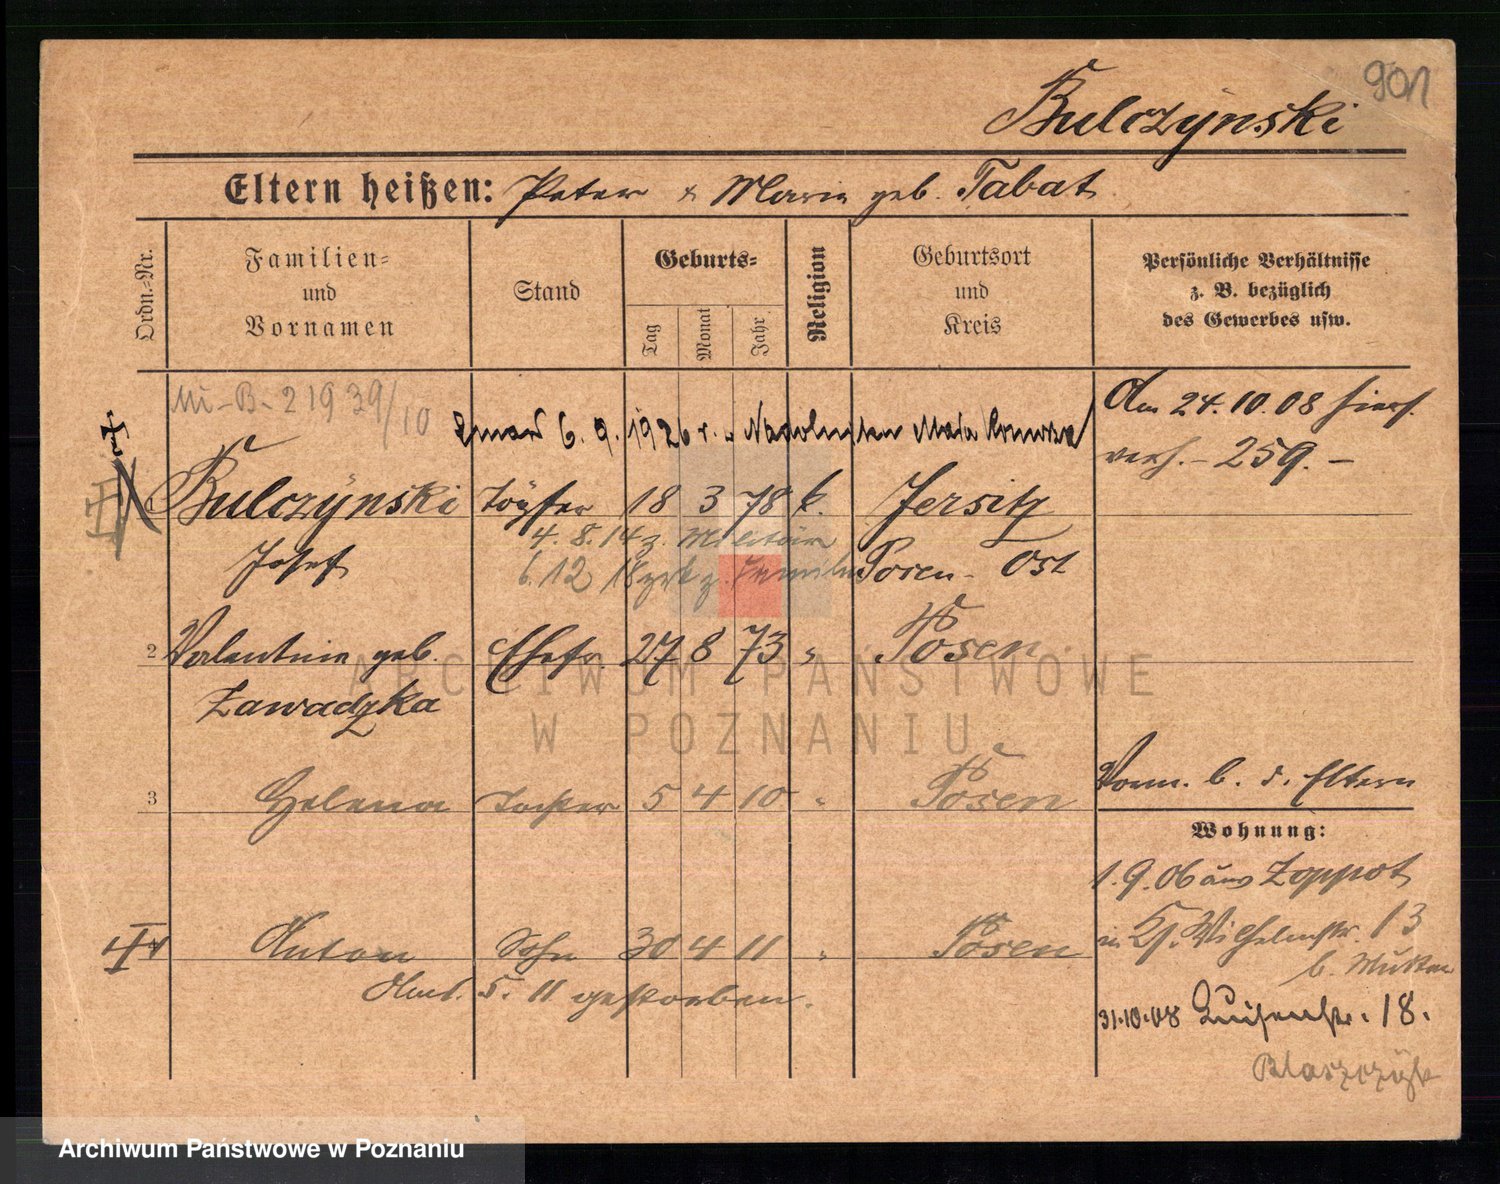 901
Bulczyński
Eltern heißen: Peter & Maria geb. Tabat
Ordn.-Nr.
Familien-
und
Vornamen
Stand
Geburts-
Tag
Monat
Jahr
Religion
Geburtsort
und
Kreis
Persönliche Verhältnisse
z. B. bezüglich
des Gewerbes usw.
Mi-B-2 1939/10
Zmarł 6. 9. 1926 r.
Am 24.10.08 hiers.
verh. - 259. -
Bulczyński Töpfer 18 3 78 k. Jersitz
Josef
4. 8. 14 z. Militär
6. 12 18 zrk z. Familie Posen Ost
2 Valentine geb. Ehefr. 27 8 73 " Posen
Zawadzka
3 Helena Tochter 5 4 10 " Posen
Vorm. b. d. Eltern
Wohnung:
1. 9. 06 aus Zoppot
in Wilhelmstr. 13
b. Mutter
Anton Sohn 30 4 11 " Posen
5. 11 gestorben.
31.10.08 Luisenstr. 18.
Blaszczyk
ARCHIWUM PAŃSTWOWE
W POZNANIU
Archiwum Państwowe w Poznaniu